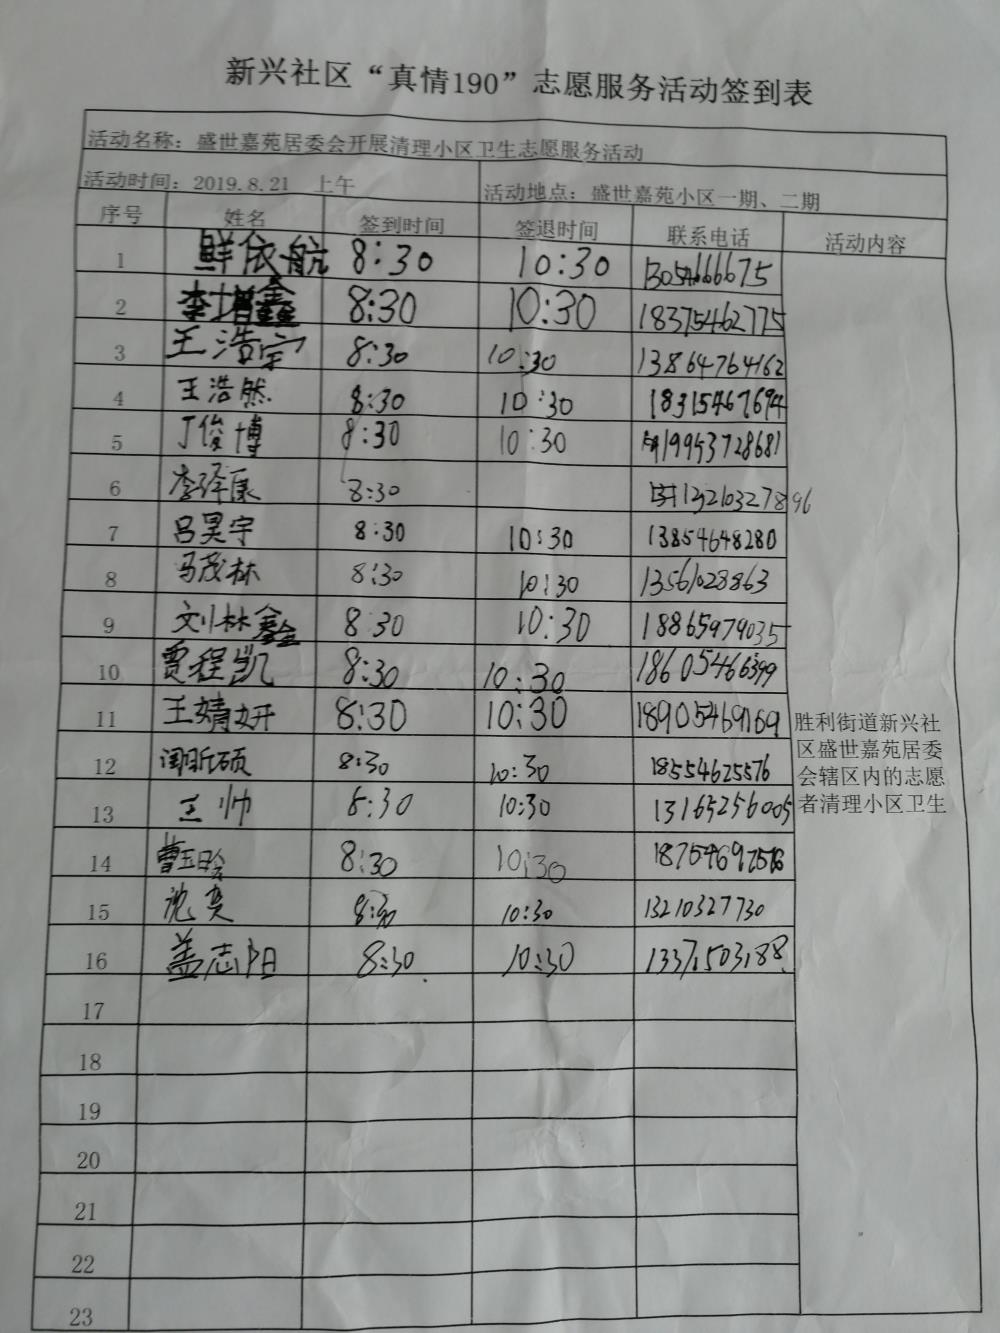 新兴社区“真情190”志愿服务活动签到表
活动名称：盛世嘉苑居委会开展清理小区卫生志愿服务活动
活动时间：2019.8.21 上午 活动地点：盛世嘉苑小区一期、二期
序号 姓名 签到时间 签退时间 联系电话 活动内容
1 鲜依航 8:30 10:30
2 李增鑫 8:30 10:30 18375462775
3 王浩宇 8:30 10:30 13864764162
4 王浩然 8:30 10:30 18315467694
5 丁俊博 8:30 10:30 19953728681
6 李泽康 8:30 13210327896
7 吕昊宇 8:30 10:30 13854648280
8 马茂林 8:30 10:30 13561028863
9 刘林鑫 8:30 10:30 18865979035
10 贾程凯 8:30 10:30 18605466399
11 王婧妍 8:30 10:30 18905469169
12 8:30 10:30 18554625576
13 王帅 8:30 10:30 13165256005
14 曹玉晗 8:30 10:30
15 沈奕 8:30 10:30 13210327730
16 盖志阳 8:30 10:30 13371503188
胜利街道新兴社
区盛世嘉苑居委
会辖区内的志愿
者清理小区卫生
17
18
19
20
21
22
23